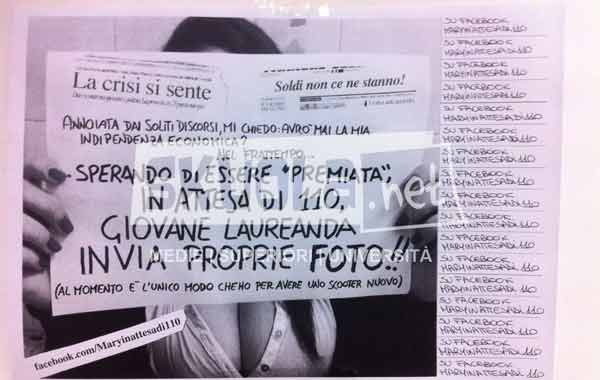 La crisi si sente
Soldi non ce ne stanno!
ANNOIATA DAI SOLITI DISCORSI, MI CHIEDO: AVRO' MAI LA MIA
INDIPENDENZA ECONOMICA?
NEL FRATTEMPO...
SPERANDO DI ESSERE "PREMIATA",
IN ATTESA DI 110,
GIOVANE LAUREANDA
INVIA PROPRIE FOTO!!
(AL MOMENTO E' L'UNICO MODO CHE HO PER AVERE UNO SCOOTER NUOVO)
facebook.com/Maryinattesadi110
SKUOLA.net
MEDIE SUPERIORI UNIVERSITÀ
SU FACEBOOK
MARYINATTESADI 110
SU FACEBOOK
MARYINATTESADI 110
SU FACEBOOK
MARYINATTESADI 110
SU FACEBOOK
MARYINATTESADI 110
SU FACEBOOK
MARYINATTESADI 110
SU FACEBOOK
MARYINATTESADI 110
SU FACEBOOK
MARYINATTESADI 110
SU FACEBOOK
MARYINATTESADI 110
SU FACEBOOK
MARYINATTESADI 110
SU FACEBOOK
MARYINATTESADI 110
SU FACEBOOK
MARYINATTESADI 110
SU FACEBOOK
MARYINATTESADI 110
SU FACEBOOK
MARYINATTESADI 110
SU FACEBOOK
MARYINATTESADI 110
SU FACEBOOK
MARYINATTESADI 110
SU FACEBOOK
MARYINATTESADI 110